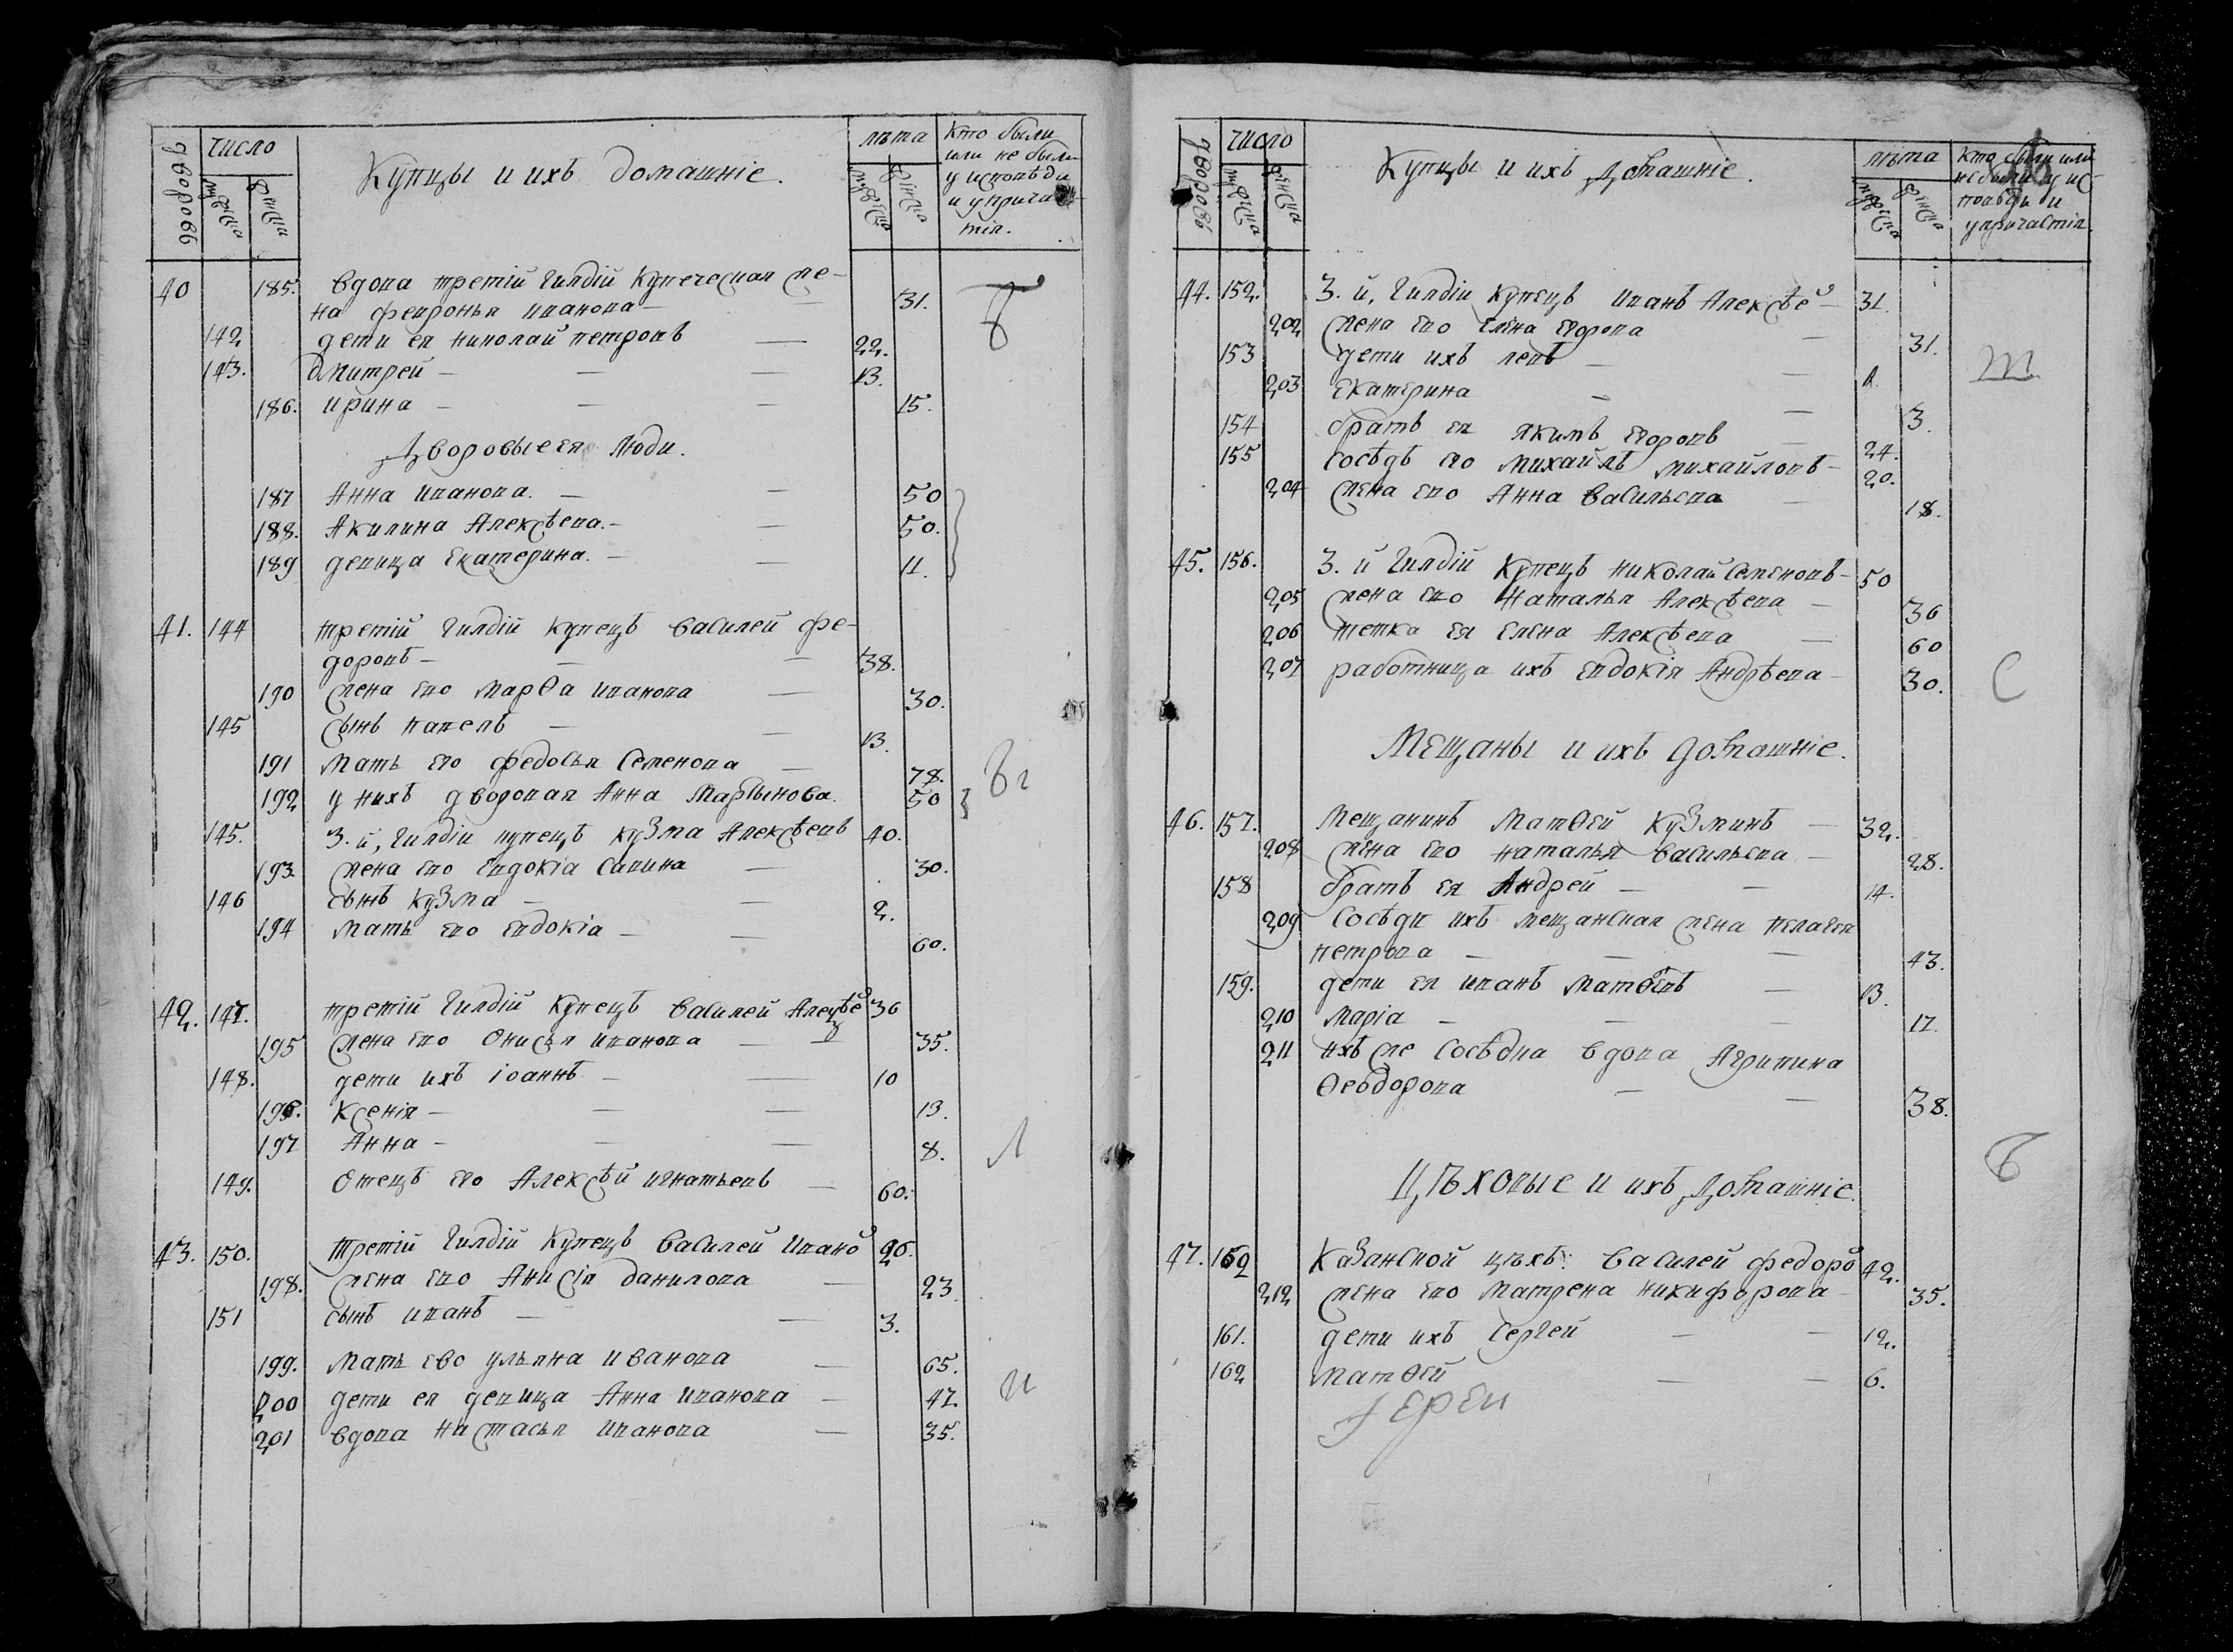 дворовъ
число
мужеска
женска
Купцы и ихъ домашніе.
лѣта
мужеска
женска
Кто были
или не были
у исповѣди
и у прича-
тія.
40 185. вдова третій Гилдій Купеческая же-
на февронья иванова — 31.
142 дети ея николай петровъ — 22.
143. Дмитрей — 13.
186. ирина — 15.
Дворовые ея люди.
187 Анна иванова. — 50
188. Акилина Алексѣева. — 50.
189 девица Екатерина. — 11.
41. 144 третій Гилдій Купецъ василей фе-
доровъ — 38.
190 жена его марѲа иванова — 30.
145 сынъ павелъ — 13.
191 мать его федосья Семенова — 78.
192 у нихъ дворовая Анна Мартынова. 50
145. 3.й, Гилдіи купецъ кузма Алексѣевъ 40.
193 жена его евдокіа савина — 30.
146 сынъ кузма — 2.
194 мать его евдокіа — 60.
42. 147. третій Гилдій Купецъ василей Алексѣе 36
195 жена его Онисья иванова — 35.
148. дети ихъ іоаннъ — 10
196. Ксенія — 13.
197 Анна — 8.
149. Отецъ его Алексѣй игнатьевъ — 60.
43. 150. третій Гилдій Купецъ василей Ивано 26.
198. жена его Анисія данилова — 23
151 сынъ иванъ — 3.
199. мать ево ульяна иванова — 65.
200 дети ея девица Анна иванова — 47.
201 вдова настасья иванова — 35.
дворовъ
число
мужеска
женска
Купцы и ихъ домашніе.
лѣта
мужеска
женска
Кто были или
не были у ис-
повѣди и
у причастія.
44. 152. 3.й, Гилдіи Купецъ иванъ Алексѣе — 31.
202 жена его Елена егорова — 31.
153 дети ихъ левъ —
203 Екатерина — 3.
154 братъ ея яким егоровъ — 24.
155 сосѣдъ его михайлъ михайловъ — 20.
204 жена его Анна васильева — 18.
45. 156. 3.й Гилдій Купецъ николай Семеновъ — 50
205 жена его наталья Алексѣева — 36
206 тетка ея елена Алексѣева — 60
207 работница ихъ евдокія Андрѣева — 30.
Мещаны и ихъ домашніе.
46. 157. мещанинъ матѲей кузминъ — 32.
208 жена его наталья васильева — 28.
158 братъ ея Андрей — 14.
209 сосѣди ихъ мещанская жена пелагея
петрова — 43.
159. дети ея иванъ матѲевъ — 13.
210 маріа — 17.
211 ихъ же сосѣдка вдова Агрипина
Ѳеодорова — 38.
Цѣховые и ихъ домашніе.
47. 160 Казанской цѣхъ: василей федоро 42.
212 жена его матрена никифорова — 35.
161. дети ихъ Сергей — 12.
162 матѲей — 6.
Іереи